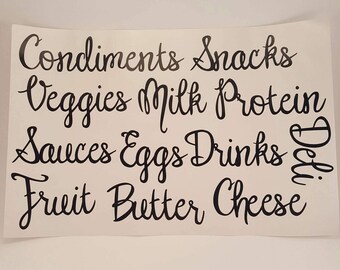 Condiments Snacks
Veggies Milk Protein
Sauces Eggs Drinks
Deli
Fruit Butter Cheese